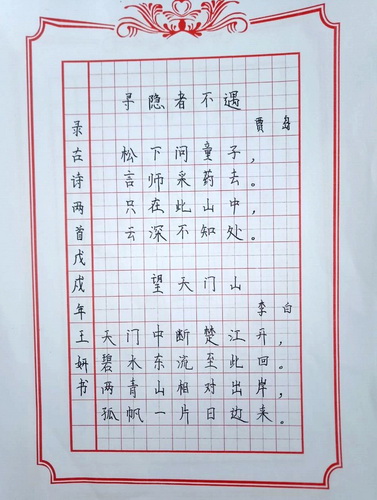 寻隐者不遇
贾岛
松下问童子，
言师采药去。
只在此山中，
云深不知处。
望天门山
李白
天门中断楚江开，
碧水东流至此回。
两青山相对出岸，
孤帆一片日边来。
录古诗两首戊戌年王妍书